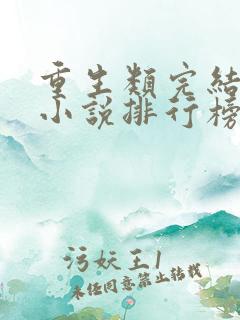 重生類完結
小說排行榜
污妖王1
未任同意禁止轉載